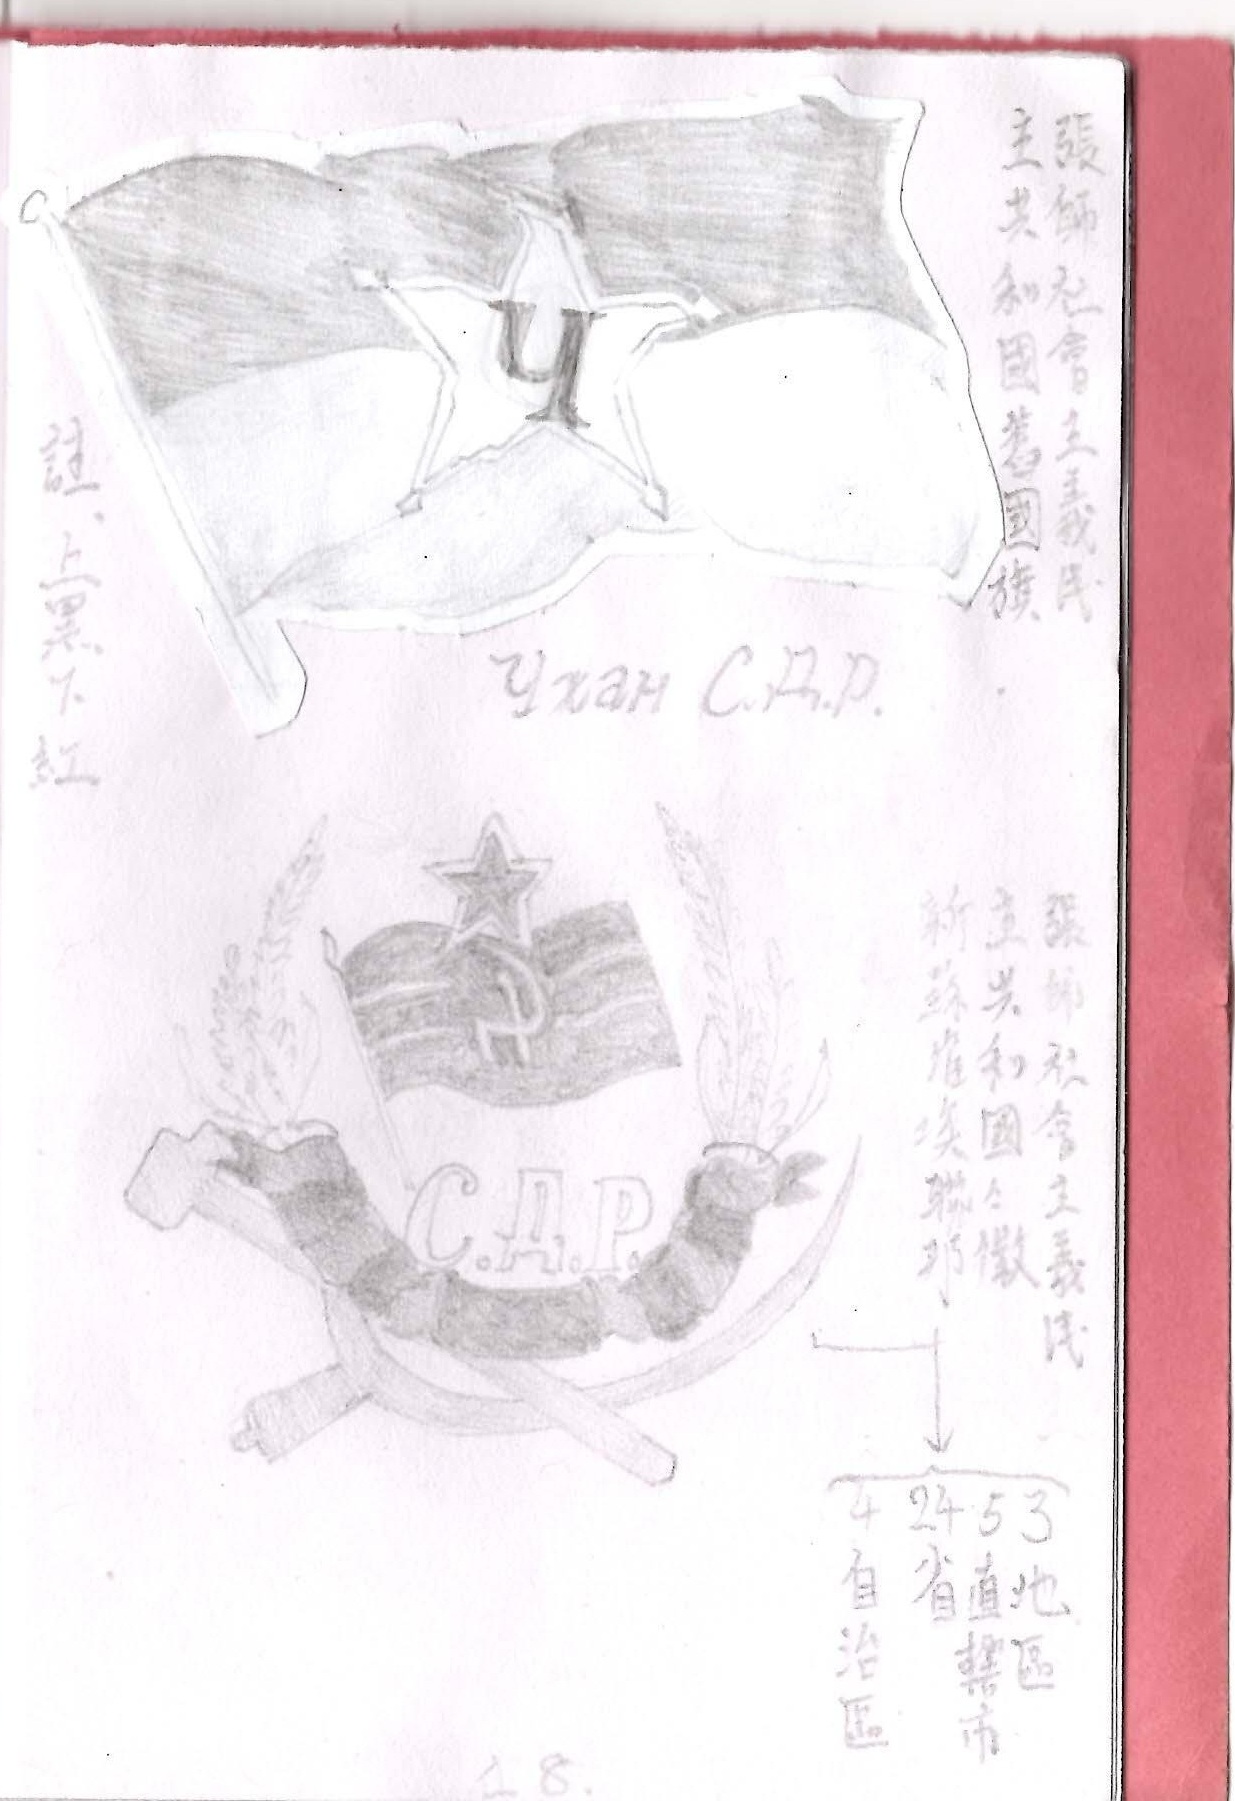 張師社會主義民
主共和國舊國旗
Ч
註、上黑下紅
Ухан С.Д.Р.
張師社會主義民
主共和國々徽
新蘇維埃聯邦
С.Д.Р.
3地區
5直轄市
24省
4自治區
18.